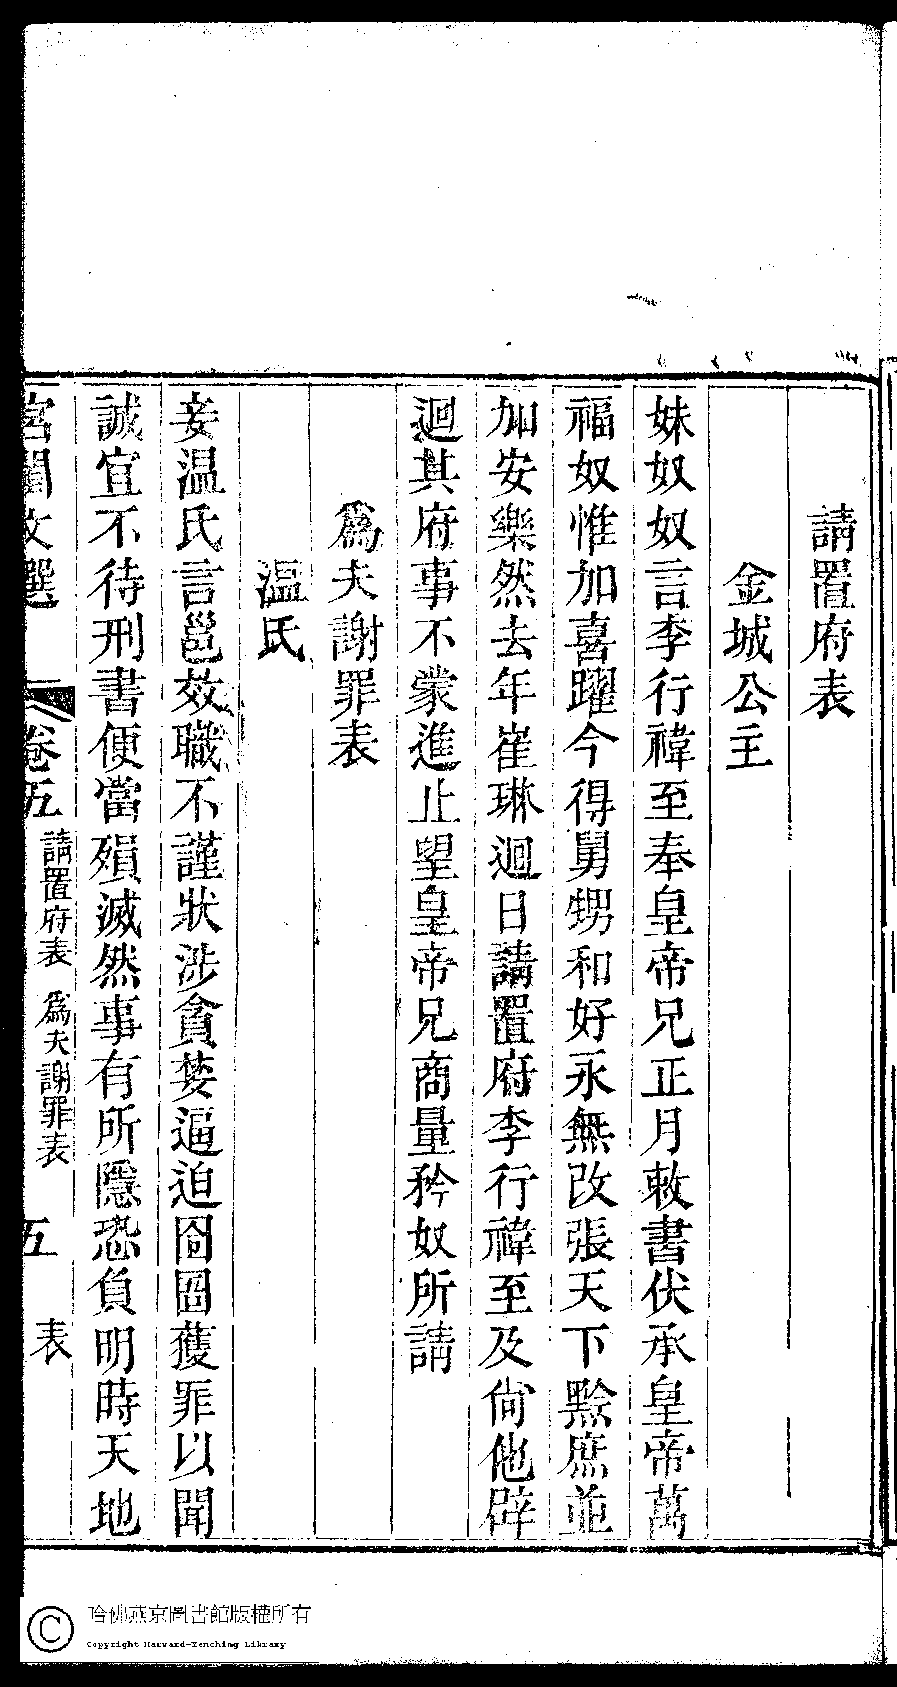 請置府表
金城公主
妹奴奴言李行禕至奉皇帝兄正月敕書伏承皇帝萬
福奴惟加喜躍今得舅甥和好永無改張天下黔庶並
加安樂然去年崔琳迴日請置府李行禕至及尙他辟
迴其府事不蒙進止望皇帝兄商量矜奴所請
爲夫謝罪表
温氏
妾温氏言邕效職不謹狀涉貪婪逼迫囹圄獲罪以聞
誠宜不待刑書便當殞滅然事有所隱恐負明時天地
宮閨文選 卷五 請置府表 爲夫謝罪表 五 表
哈佛燕京圖書館版權所有
Copyright Harvard-Yenching Library